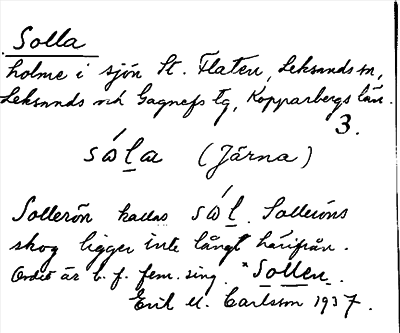 Solla
holme i sjön St. Flaten, Leksands sn,
Leksands och Gagnefs tg, Kopparbergs län.
3.
sɷ́l̲a (Järna)
Sollerön kallas sɷ́l̲. Solleröns
skog ligger inte långt härifrån.
Ordet är b. f. fem. sing. *Sollen.
Erik M. Carlsson 1937.